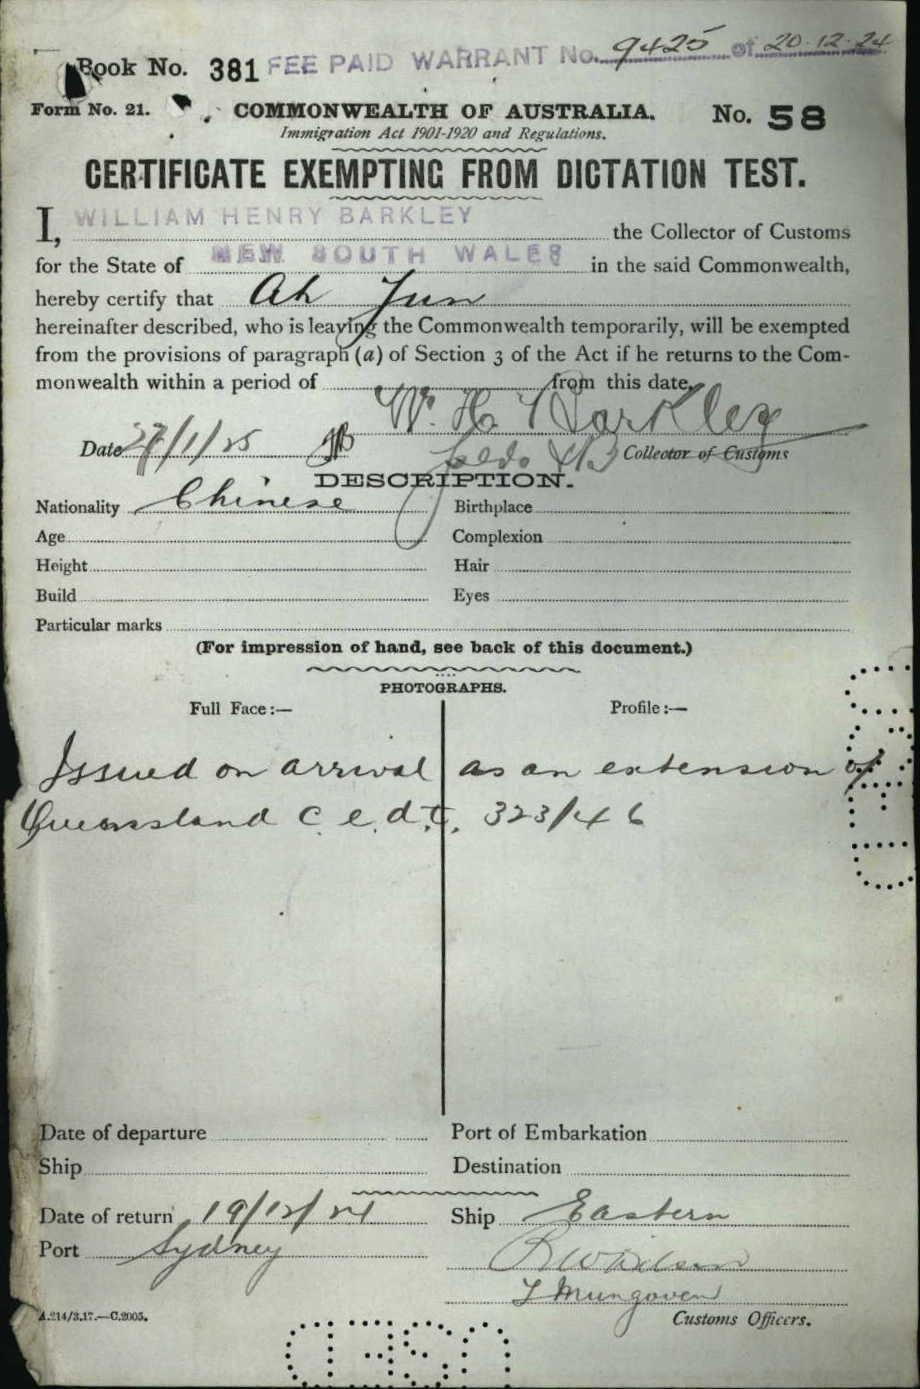 Book No. 381 FEE PAID WARRANT No. 9425 of 20.12.24
Form No. 21. COMMONWEALTH OF AUSTRALIA. No. 58
Immigration Act 1901-1920 and Regulations.
CERTIFICATE EXEMPTING FROM DICTATION TEST.
I, WILLIAM HENRY BARKLEY the Collector of Customs
for the State of NEW SOUTH WALES in the said Commonwealth,
hereby certify that Ah Jun
hereinafter described, who is leaving the Commonwealth temporarily, will be exempted
from the provisions of paragraph (a) of Section 3 of the Act if he returns to the Com-
monwealth within a period of from this date.
W. H. Barkley
Date 27/1/25 Collector of Customs
DESCRIPTION.
Nationality Chinese Birthplace
Age Complexion
Height Hair
Build Eyes
Particular marks
(For impression of hand, see back of this document.)
PHOTOGRAPHS.
Full Face:— Profile:—
Issued on arrival as an extension of
Queensland C.e.d.t. 323/46
Date of departure Port of Embarkation
Ship Destination
Date of return 19/12/24 Ship Eastern
Port Sydney
T Mungoven
A.214/3.17.—C.2005. Customs Officers.